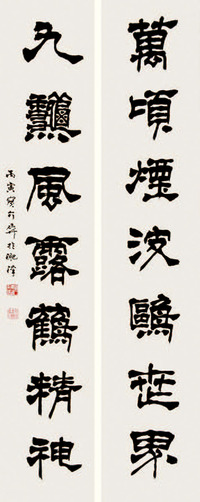 萬頃煙波鷗世界
九天風露鶴精神
丙寅